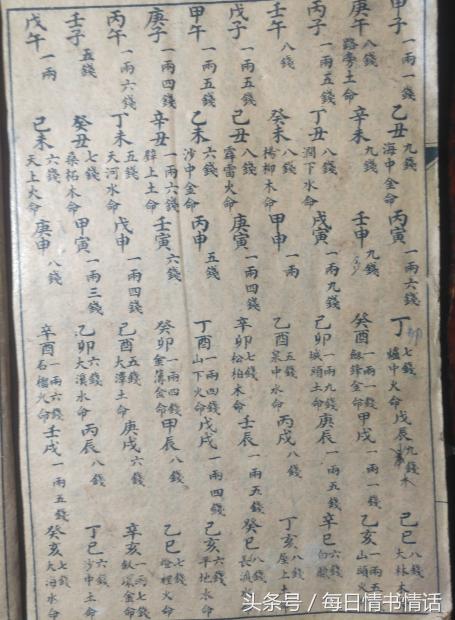 甲子 一兩一錢 乙丑 九錢 海中金命 丙寅 一兩六錢 丁卯 七錢 爐中火命 戊辰 九錢 木 己巳 八錢 大林木
庚午 八錢 路旁土命 辛未 九錢 壬申 九錢 癸酉 一兩一錢 劍鋒金命 甲戌 一兩一錢 乙亥 一兩五 山頭火
丙子 一兩五錢 丁丑 八錢 澗下水命 戊寅 一兩九錢 己卯 一兩九錢 城頭土命 庚辰 一兩五錢 辛巳 六錢 白
壬午 八錢 癸未 八錢 楊柳木命 甲申 一兩 乙酉 五錢 泉中水命 丙戌 八錢 丁亥 八錢 屋上土
戊子 一兩五錢 己丑 八錢 霹雷火命 庚寅 一兩四錢 辛卯 七錢 松柏木命 壬辰 一兩五錢 癸巳 八錢 長流水
甲午 一兩五錢 乙未 六錢 沙中金命 丙申 五錢 丁酉 一兩四錢 山下火命 戊戌 一兩四錢 己亥 六錢 平地水命
庚子 一兩四錢 辛丑 一兩六錢 辟上土命 壬寅 六錢 癸卯 一兩四錢 金簿金命 甲辰 八錢 乙巳 七錢 燈裡火命
丙午 一兩六錢 丁未 五錢 天河水命 戊申 一兩四錢 己酉 五錢 大澤土命 庚戌 六錢 辛亥 一兩七錢 釵環金命
壬子 五錢 癸丑 七錢 桑柘木命 甲寅 一兩三錢 乙卯 六錢 大溪水命 丙辰 八錢 丁巳 六錢 沙中土命
戊午 一兩 己未 六錢 天上火命 庚申 八錢 辛酉 一兩六錢 石榴火命 壬戌 一兩五錢 癸亥 七錢 大海水命
头条号 / 每日情书情话